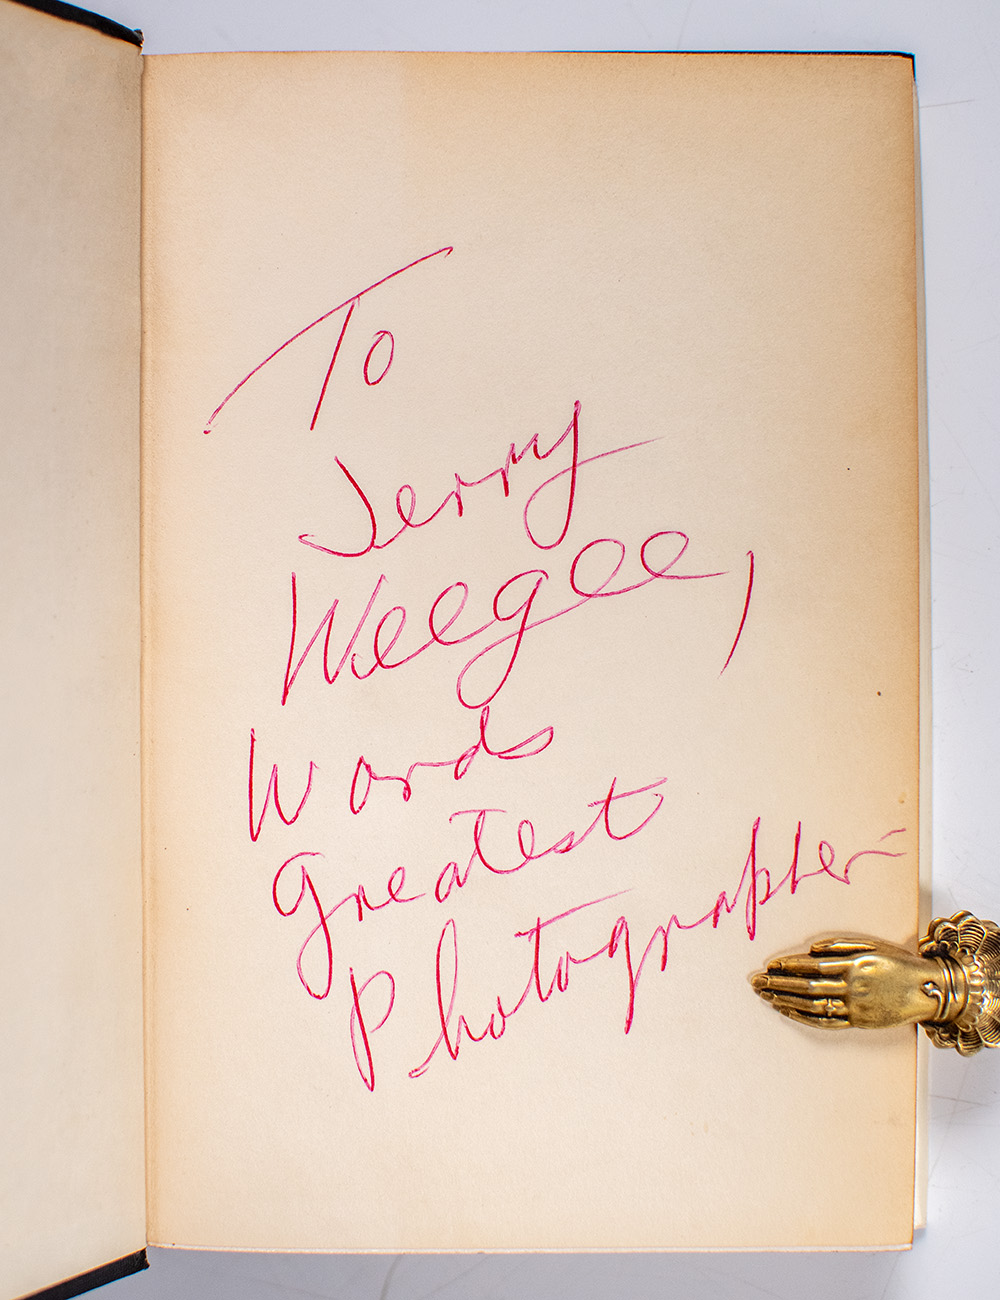 To
Jerry
Weegee,
Words
greatest
Photographer